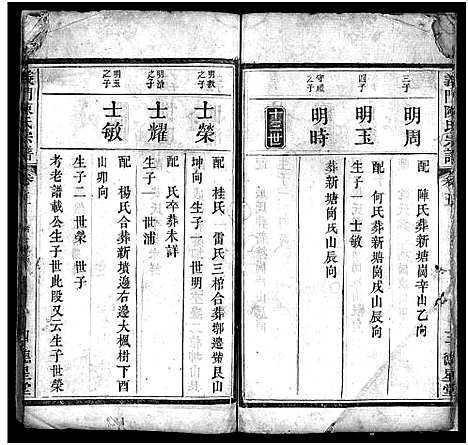 義門陳氏宗譜
三子
明周
配 陳氏合葬新塘崗辛山乙向
四子
明玉
配 何氏葬新塘崗戌山辰向
生子一 士敏
守曦之子
明時
配
葬新塘崗戌山辰向
十三世
明教之子
士榮
配 桂氏 雷氏三棺合葬鄢邊柴艮山
坤向 生子一 世明
明浩之子
士耀
配 氏卒葬未詳
生子一 世浦
明玉之子
士敏
配 楊氏合葬新墳邊右邊大楓樹下酉
山卯向
生子二 世榮 世子
考老譜載公生子世此段又云生子世榮
義門陳氏宗譜
德星堂